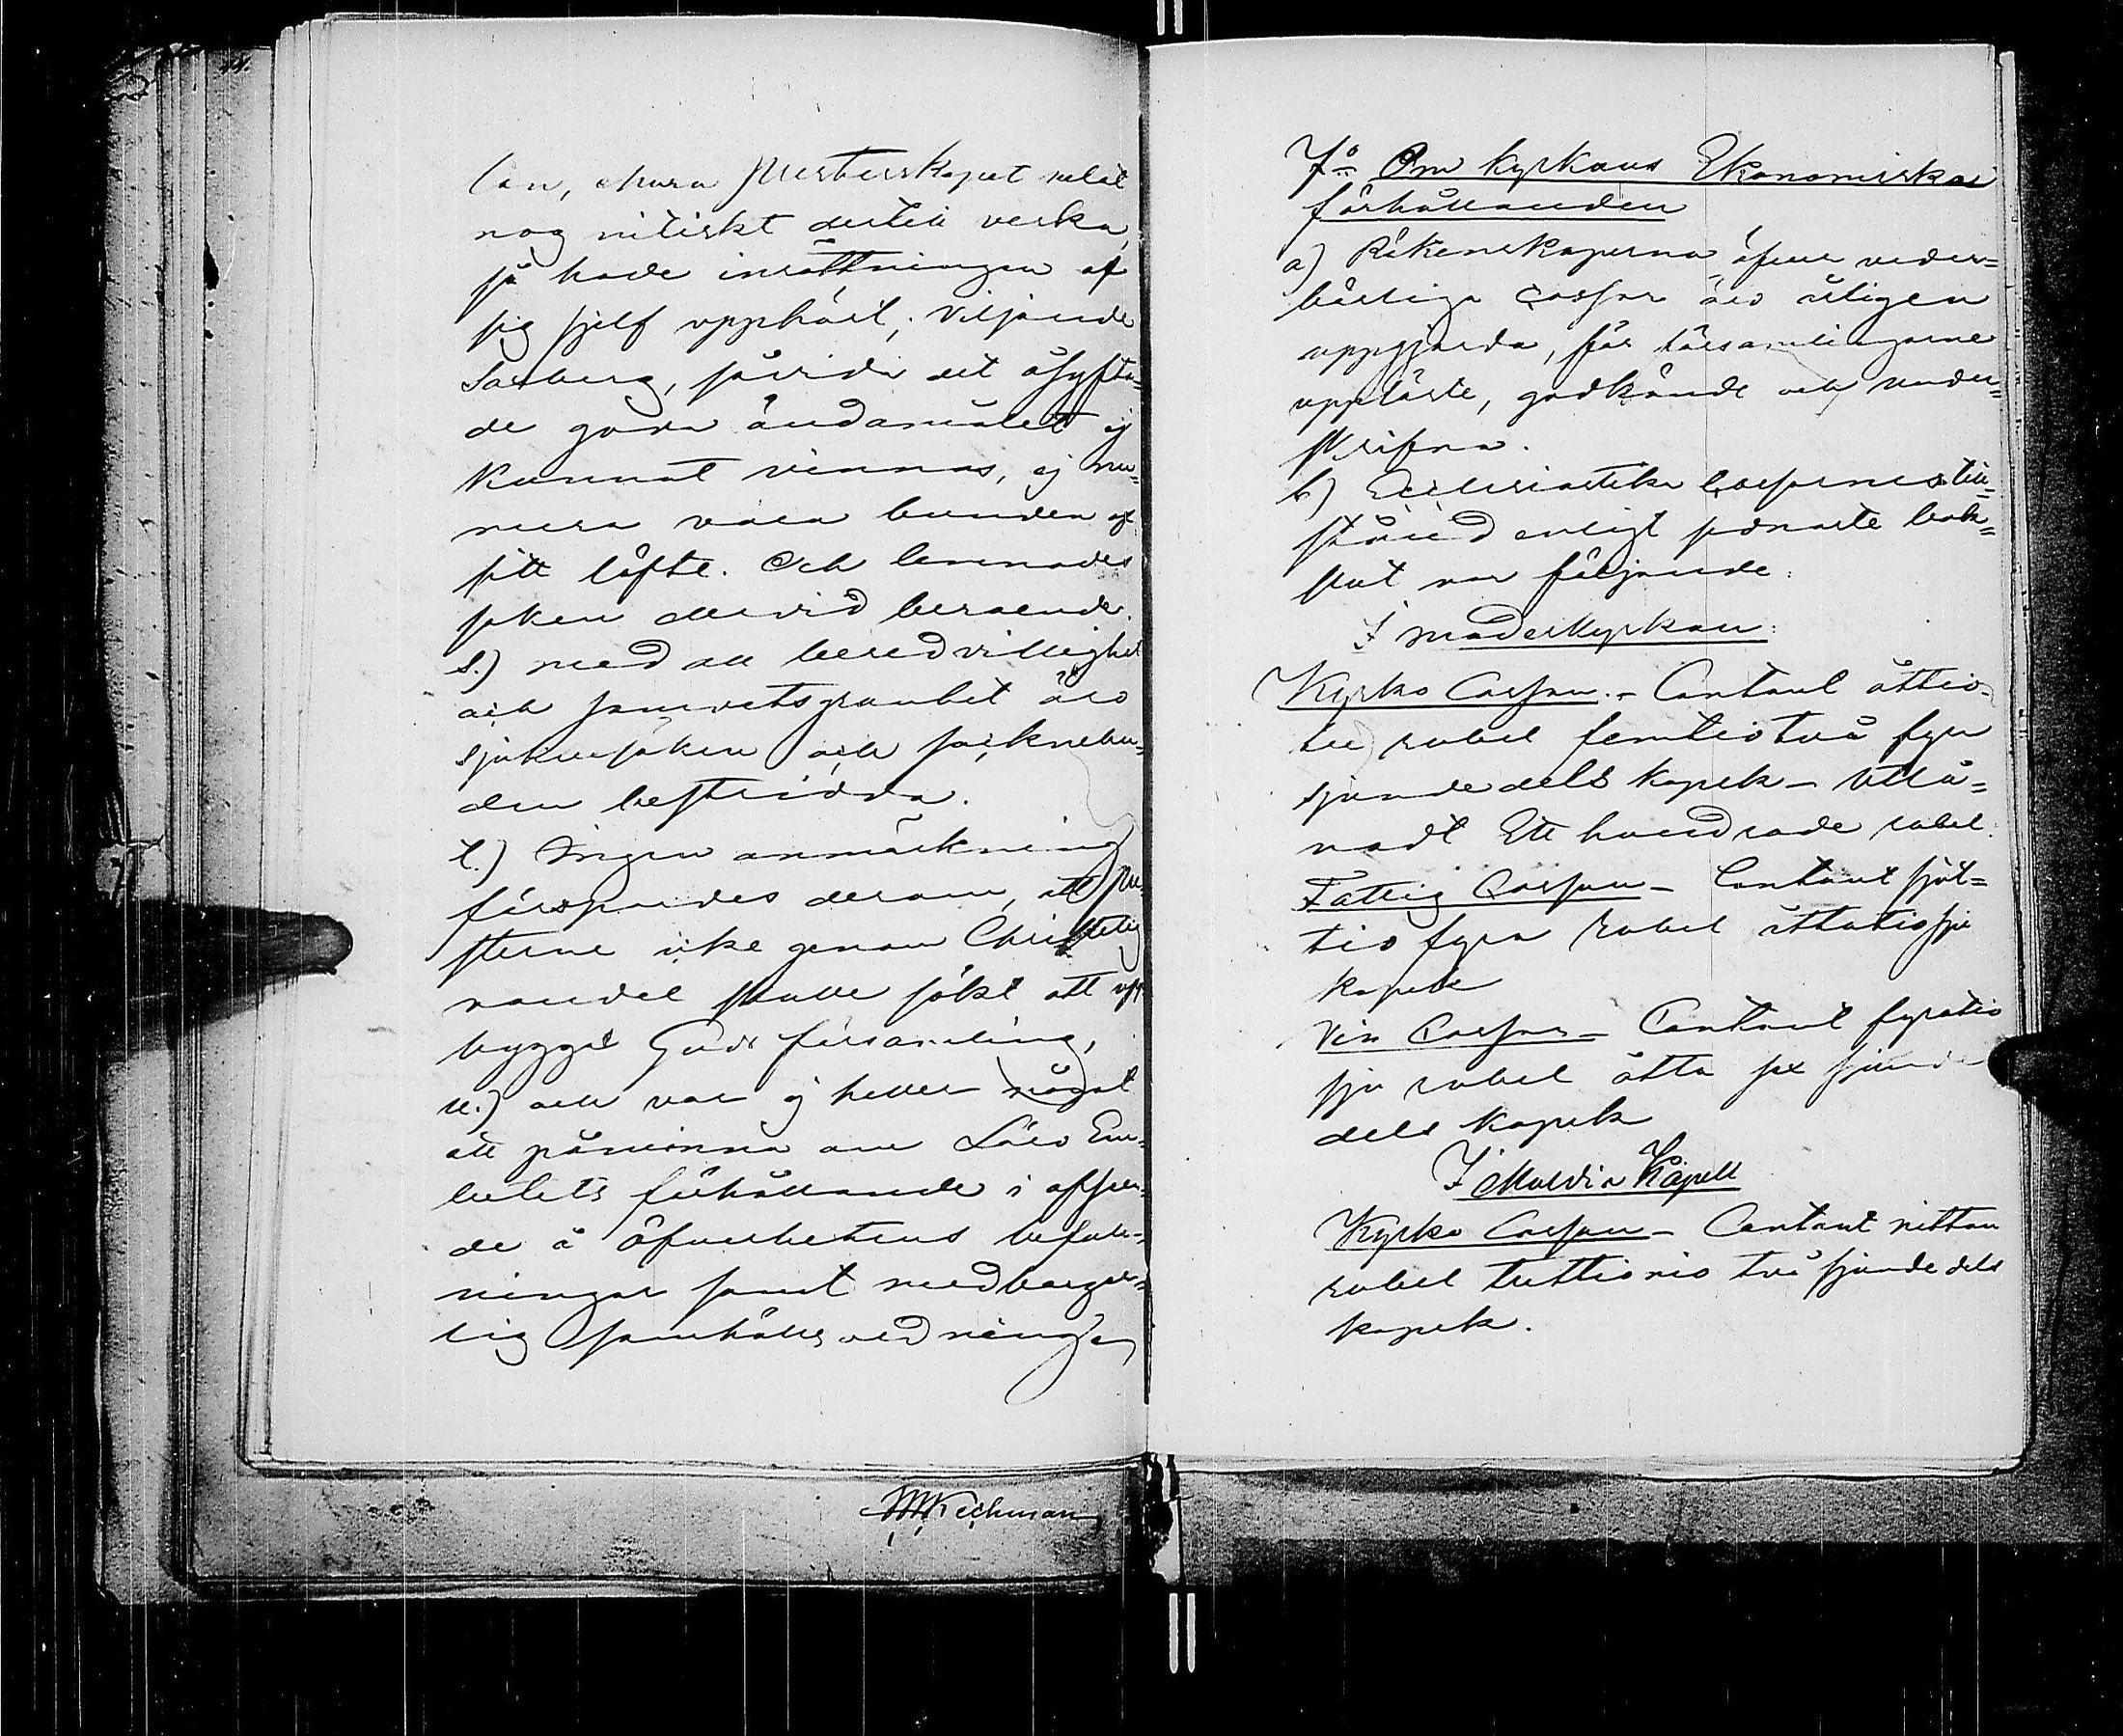 44.
lan, ehuru Presterskapet velat
nog nitiskt dertill verka,
så hade inrättningen af
sig sjelf upphört; viljande
Sarberg, såvida det åsyfta-
de goda ändamålet ej
kunnat vinnas, ej nu-
mera vara bunden af
sitt löfte. Och lemnades
saken dervid beroende.
s.) med all beredvillighet
och samvetsgranhet äro
sjukresor och socknebu-
den bestridda.
t.) Ingen anmärkning
förspordes derom, att pre-
sterne icke genom Christelig
vandel skulle sökt att upp-
bygga Guds församling,
u.) och var ej heller något
att påminna om Läro Em-
betets förhållande i afseen-
de å Öfverhetens befall-
ningar samt medborger-
lig samhällsordning.
Kechman
7:o Om kyrkans Ekonomiska
förhållanden
a) Räkenskaperna öfver veder-
börliga Cassor äro årligen
uppgjorda, för församlingarne
uppläste, godkände och under-
skrifna.
b) Ecclesiastika Cassornes till-
stånd enligt sednaste bok-
slut var följande:
I moderkyrkan:
Kyrko Cassan. - Contant åttio-
tre rubel femtiotvå fyra
sjundedels kopek - Utlå-
nadt Ett hundrade rubel.
Fattig Cassan - Contant sjut-
tio fyra Rubel åttatiosju
kopek
Vin Cassan - Contant fyratio
sju rubel åtta sex sjunde
dels kopek
I Muldia Kapell
Kyrko Cassan - Contant nitton
rubel trettionio två sjundedels
kopek.